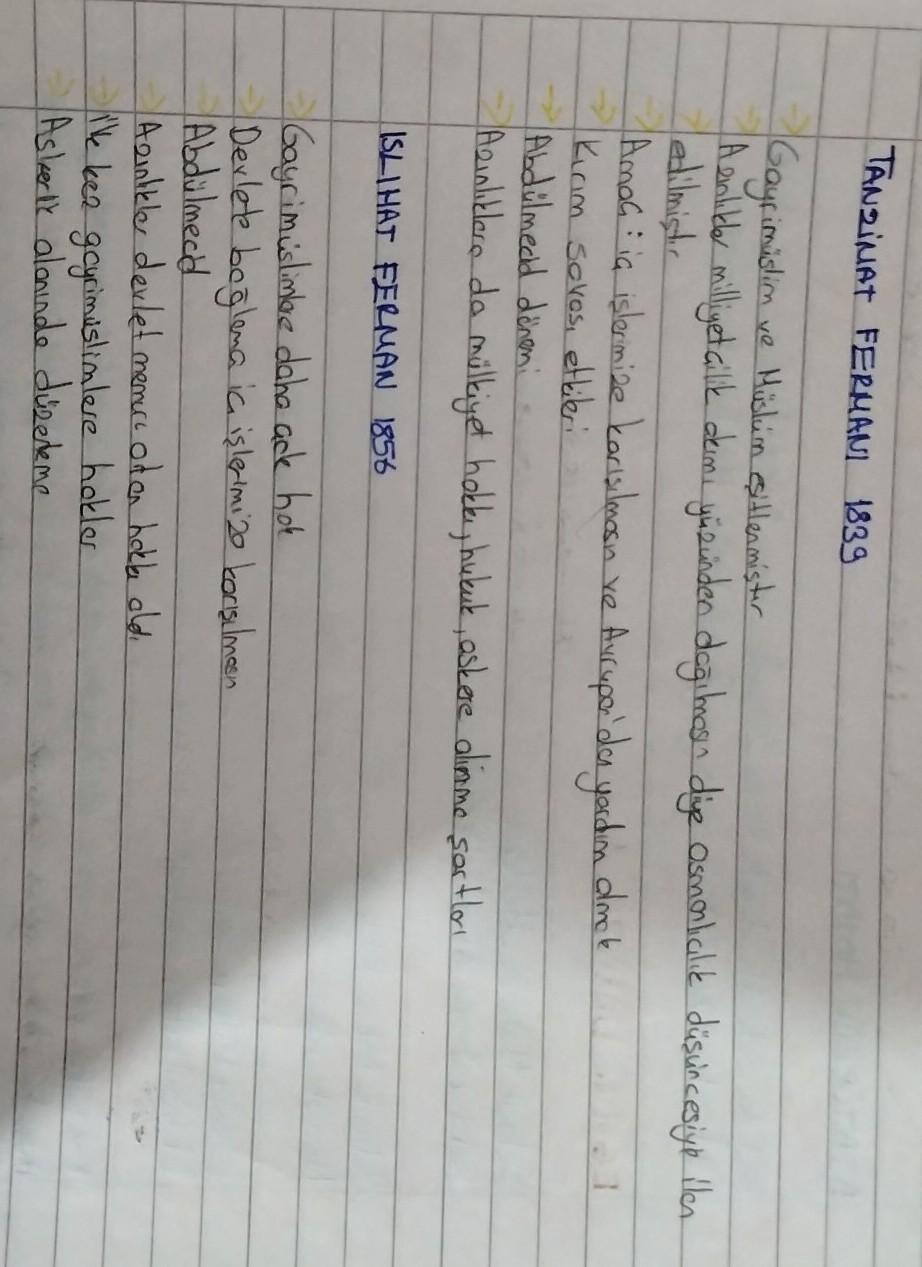 TANZİMAT FERMANI 1839
→ Gayrimüslim ve Müslüm eşitlenmiştir
→ Azınlıklar milliyetcilik akımı yüzünden dağılmasın diye osmanlıcılık düşüncesiyle ilan
→ edilmiştir
→ Amaç : iç işlerimize karışılmasın ve Avrupa'dan yardım almak
→ Kırım savaşı etkileri
→ Abdülmecid dönemi
→ Azınlıklara da mülkiyet hakkı, hukuk, askere alınma şartları
ISLIHAT FERMAN 1856
→ Gayrimüslimlere daha çok hak
→ Devlete bağlama iç işlerimize karışılmasın
→ Abdülmecid
→ Azınlıklar devlet memuru olan hakkı aldı
→ ilk kez gayrimüslimlere haklar
→ Askerlik alanında düzenleme